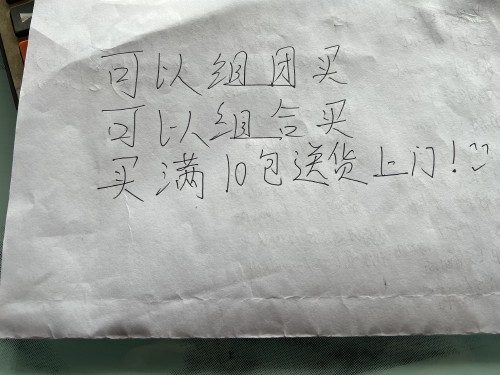 可以组团买
可以组合买
买满10包送货上门!^^